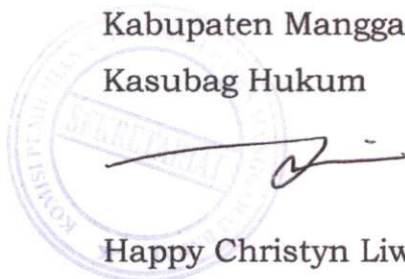 Kabupaten Mangga
Kasubag Hukum
SEKRETARIAT
Happy Christyn Liw